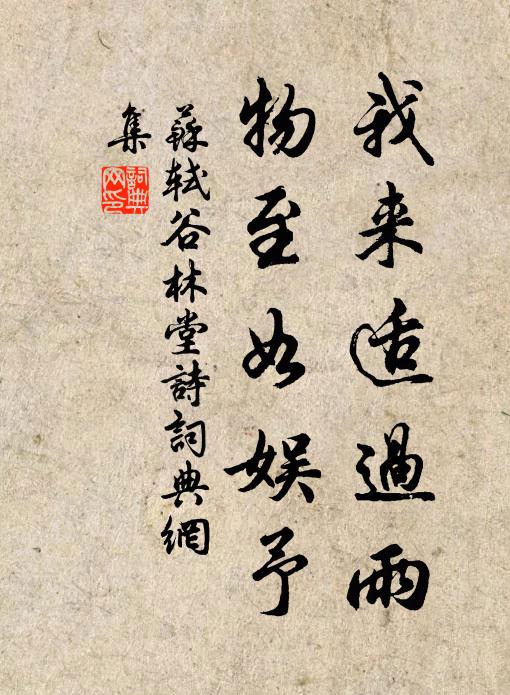 我来适過雨
物至如娱予
蘇軾谷林堂詩詞典網
集
詞典網印